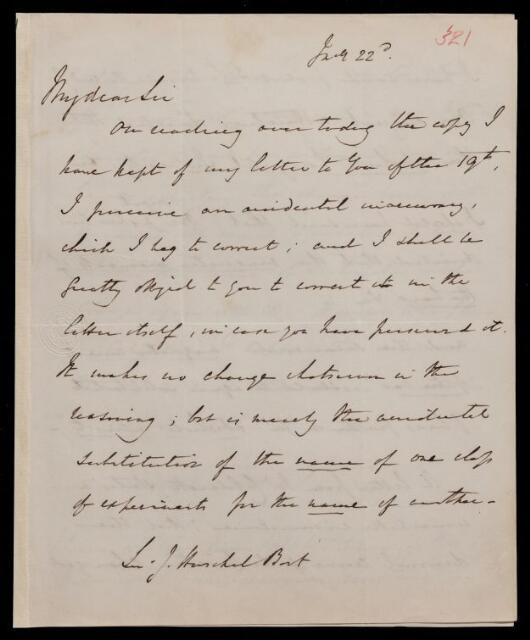 321
July 22d.
My dear Sir
On reading over today the copy I
have kept of my letter to you of the 19th,
I perceive an accidental inaccuracy,
which I beg to correct; and I shall be
greatly obliged to you to correct it in the
letter itself, in case you have preserved it.
It makes no change whatever in the
reasoning; but is merely the accidental
substitution of the name of one class
of experiments for the name of another.
Sir J. Herschel Bart